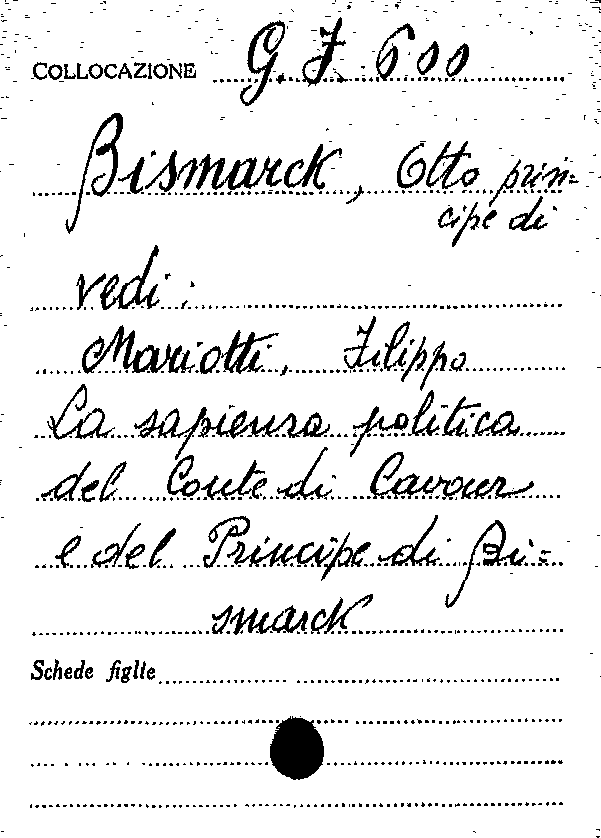 COLLOCAZIONE G. F. 600
Bismarck, Otto prin=
cipe di
vedi:
Mariotti, Filippo
La sapienza politica
del Conte di Cavour
e del Principe di Bi=
smarck
Schede figlie